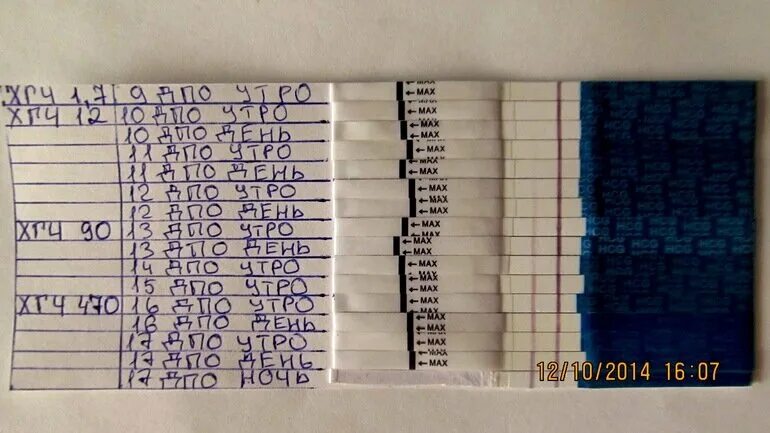 ХГЧ 1,7 9 ДПО УТРО ← MAX
ХГЧ 12 10 ДПО УТРО ← MAX
10 ДПО ДЕНЬ ← MAX
11 ДПО УТРО ← MAX
11 ДПО ДЕНЬ ← MAX
12 ДПО УТРО ← MAX
12 ДПО ДЕНЬ ← MAX
ХГЧ 90 13 ДПО УТРО ← MAX
13 ДПО ДЕНЬ ← MAX
14 ДПО УТРО ← MAX
15 ДПО УТРО ← MAX
ХГЧ 470 16 ДПО УТРО ← MAX
16 ДПО ДЕНЬ ← MAX
17 ДПО УТРО ← MAX
17 ДПО ДЕНЬ ← MAX
17 ДПО НОЧЬ
12/10/2014 16:07